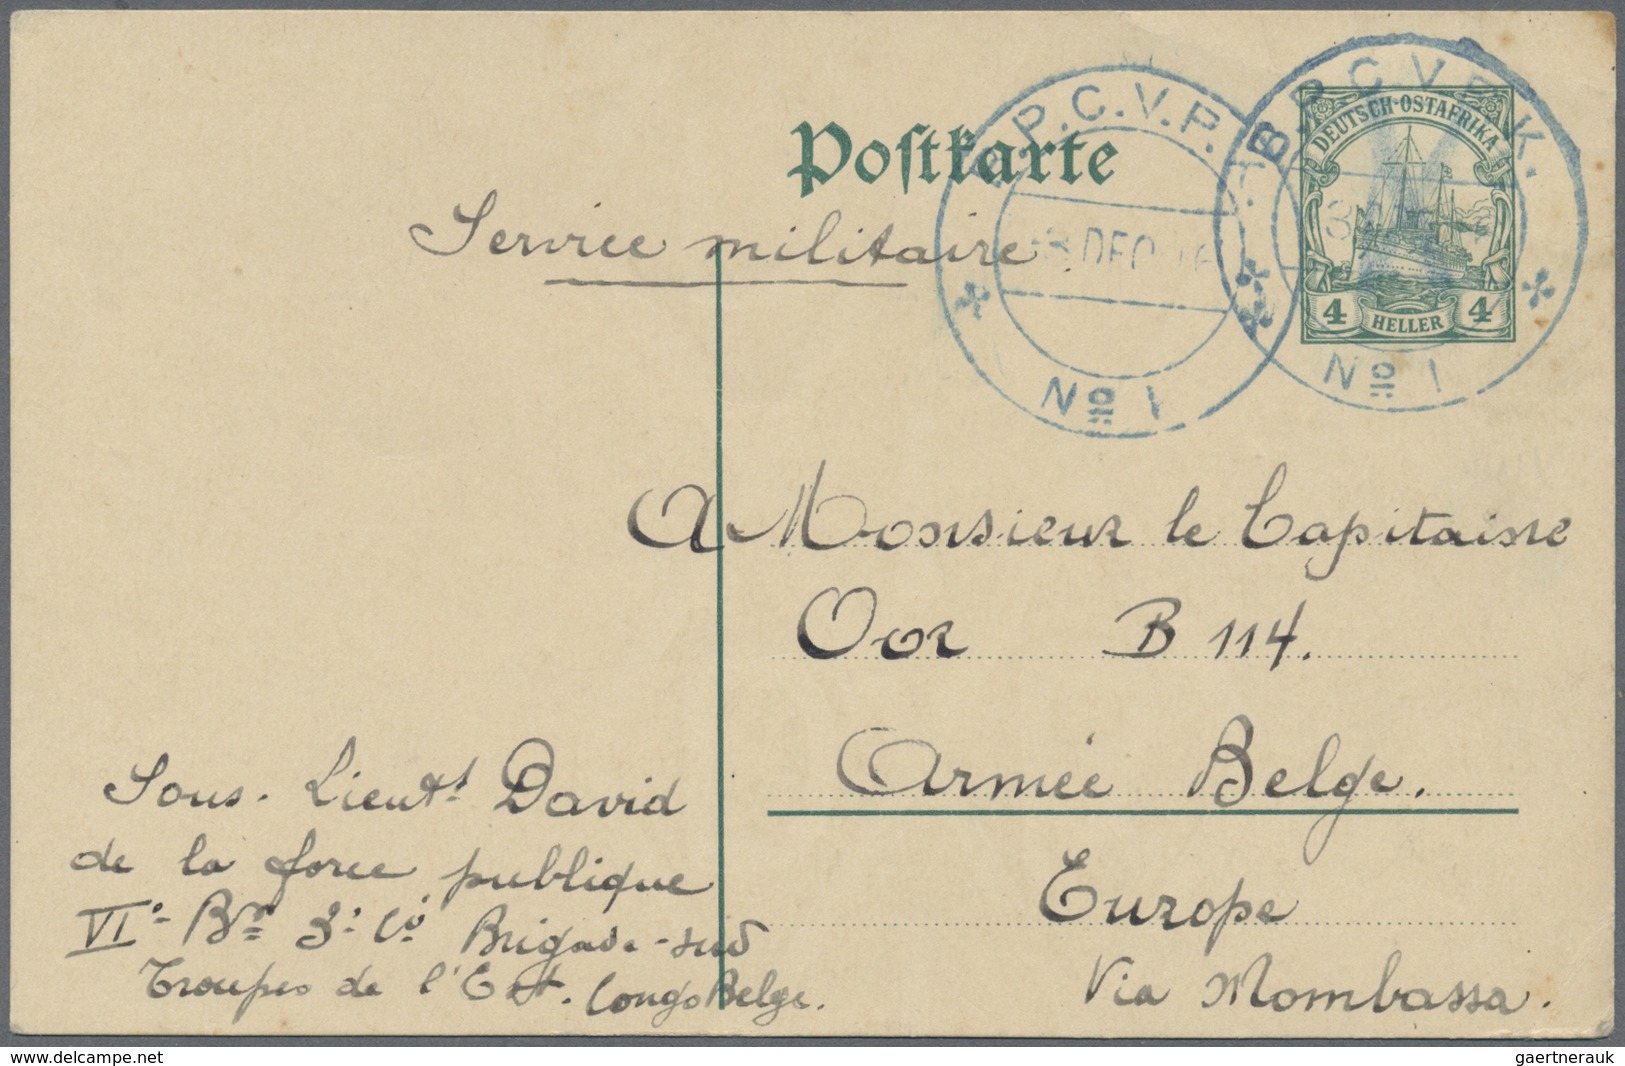 Postkarte
B.P.C.V.P.K.
DEC
No 1
B.P.C.V.P.K.
No 1
DEUTSCH-OSTAFRIKA
4 HELLER 4
Service militaire
A Monsieur le Capitaine
Oor B 114.
Armée Belge.
Europe
Via Mombassa.
Sous-Lieutt David
de la force publique
VIe Bon 3e Cie Brigade-sud
Troupes de l'Est. Congo Belge.
gaertnerauk
delcampe.net